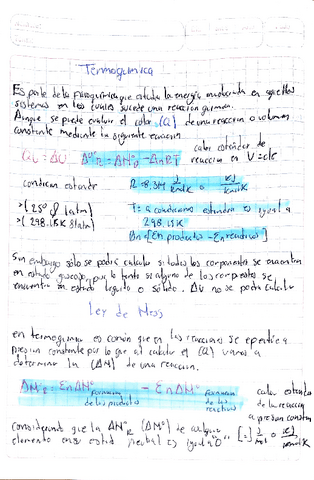 Termoquimica
Es parte de la fisicoquimica que estudia la energía involucrada en aquellos
sistemas en los cuales sucede una reaccion quimica.
Aunque se puede evaluar el calor (Q) de una reaccion a volumen
constante mediante la siguiente ecuacion
calor estandar de
Qv = ΔU
reaccion en V=cte
condicion estandar
R = 8.314
> (25° y 1atm)
T = a condiciones estandar es igual a
> (298.15K y 1atm)
298.15K
Δn [Σn productos - Σn reactivos]
Sin embargo sólo se podrá calcular si todos los componentes se encuentran
en estado gaseoso, por lo tanto si alguno de los componentes se
encuentra en estado liquido o solido. ΔU no se podra calcular
Ley de Hess
en termoquimica es común que en las reacciones se
presion constante por lo que al calcular el (Q) vamos a
determinar la (ΔH) de una reaccion.
calor estandar
formacion
de los productos
formacion
de los reactivos
de la reaccion
a presion constante
Considerando que la de cualquier
elemento en su estado neutral es igual a "0"